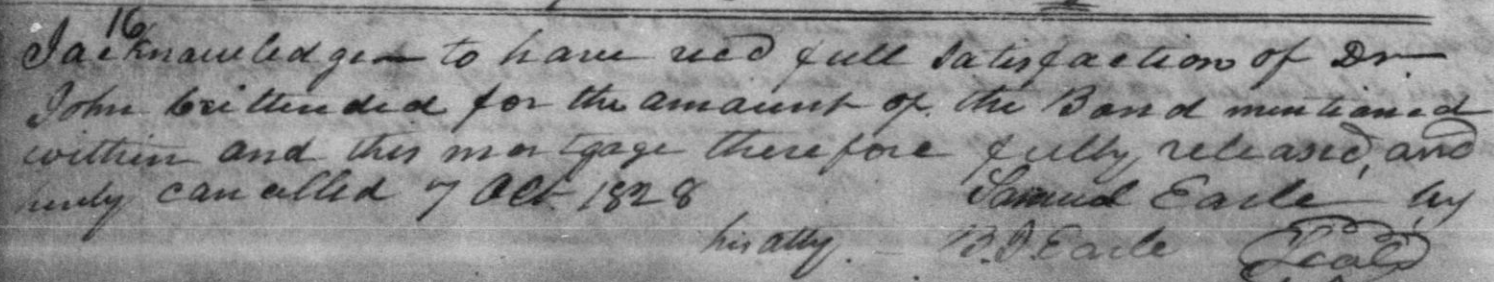 16
I acknowledge to have recd full satisfaction of Dr.
John Crittended for the amount of the Bond mentioned
within and this mortgage therefore fully released, and
henby cancelled 7 Oct 1828 Samuel Earle by
his atty. - B.J. Earle Seal